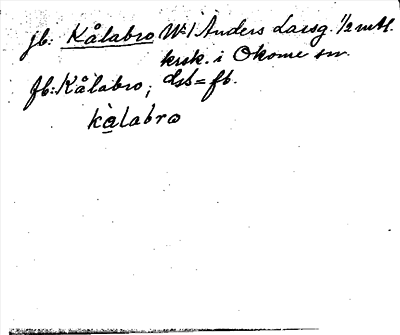 jb: Kålabro No 1 Anders Larsg. 1/2 mtl.
krsk. i Okome sn.
fb: Kålabro; dsb = fb.
kàlabrω